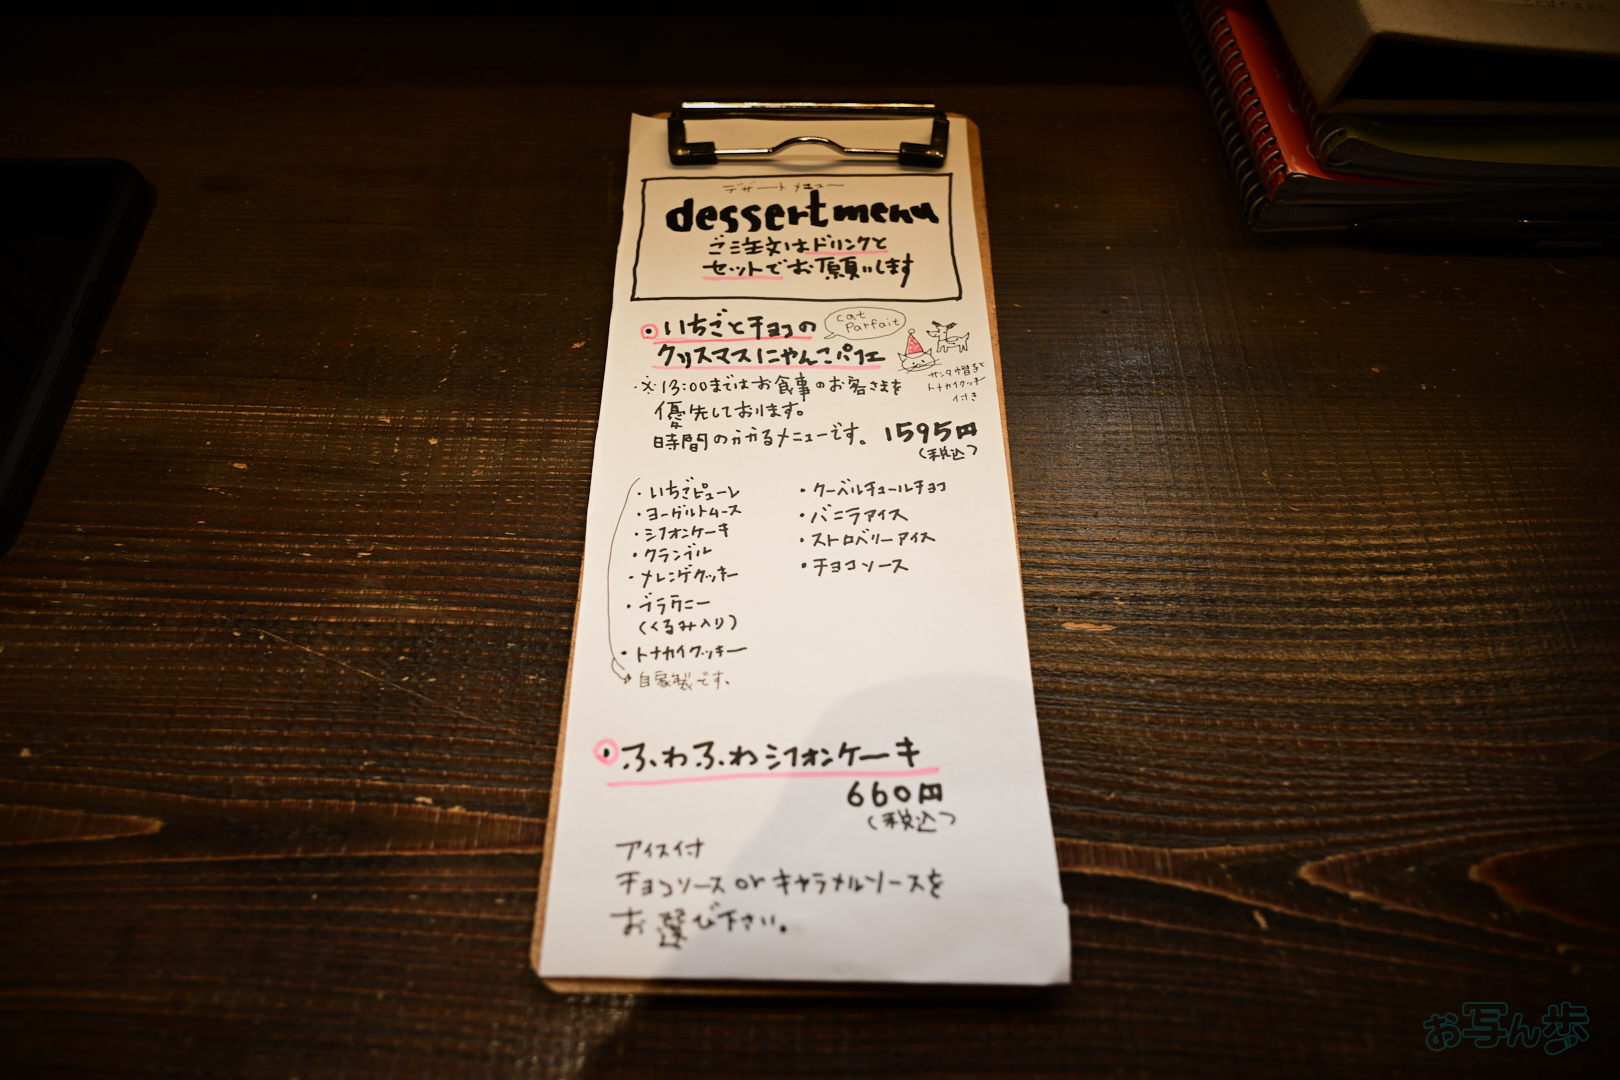 デザートメニュー
dessert menu
ご注文はドリンクと
セットでお願いします
いちごとチョコの
クリスマスにゃんこパフェ
cat
Parfait
サンタ帽子と
トナカイクッキー
付き
※13:00まではお食事のお客さまを
優先しております。
時間のかかるメニューです。 1595円
(税込)
・いちごピューレ
・ヨーグルトムース
・シフォンケーキ
・クランブル
・メレンゲクッキー
・ブラウニー
(くるみ入り)
・トナカイクッキー
自家製です。
・クーベルチュールチョコ
・バニラアイス
・ストロベリーアイス
・チョコソース
ふわふわシフォンケーキ
660円
(税込)
アイス付
チョコソース or キャラメルソースを
お選び下さい。
お写ん歩